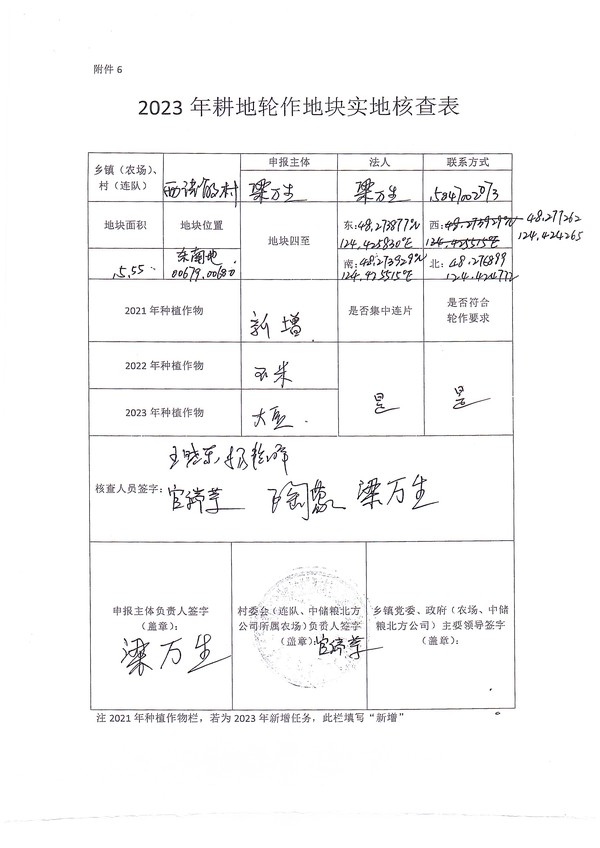 附件 6
2023 年耕地轮作地块实地核查表
乡镇（农场）、
村（连队）
申报主体
法人
联系方式
梁万生
梁万生
地块面积
地块位置
地块四至
东:48.273877°N
124.425830°E
西:48.273929°N 48.277262
124.425515°E 124.424265
5.55
东南地
南:48.273929°N
124.425515°E
北:48.276899
124.424772
2021 年种植作物
新增
是否集中连片
是否符合
轮作要求
2022 年种植作物
玉米
2023 年种植作物
大豆
是
是
核查人员签字:
梁万生
申报主体负责人签字
（盖章）:
梁万生
村委会（连队、中储粮北方
公司所属农场）负责人签字
（盖章）:
乡镇党委、政府（农场、中储
粮北方公司）主要领导签字
（盖章）:
注 2021 年种植作物栏，若为 2023 年新增任务，此栏填写“新增”